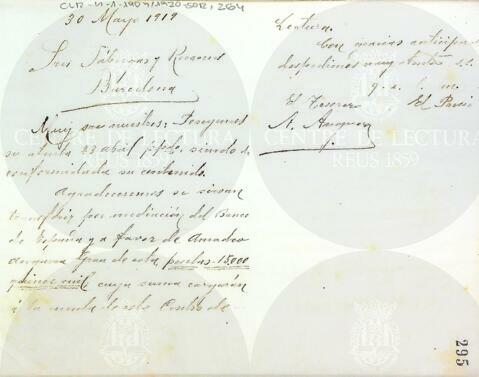 CLR-U-1-1904/1920-50R, 264
30 Mayo 1919
Sres Fábregas y Recasens
Barcelona
Muy sres nuestros: Tenemos
su atenta 23 abril ppdo, siendo de
conformidad su contenido.
Agradeceremos se sirvan
transferir por mediación del Banco
de España y a favor de Amadeo
de esta, pesetas 15,000
quince mil cuya suma cargarán
á la cuenta de este Centro de
Lectura.
Con gracias anticipa
despedimos muy attos s.s.
q. e. m.
El Tesorero El Presi
A.
295
CENTRE DE LECTURA
REUS 1859